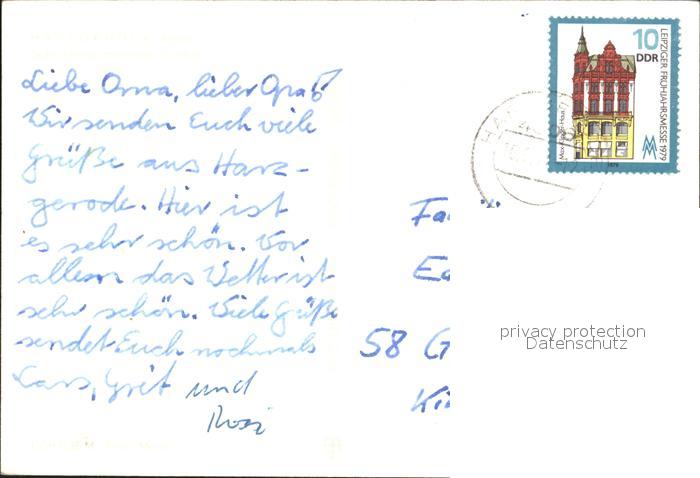 Liebe Oma, lieber Opa!
Wir senden Euch viele
Grüße aus Harz-
gerode. Hier ist
es sehr schön. Vor
allem das Wetter ist
sehr schön. Viele Grüße
sendet Euch nochmals
Lars, Grit und
Rosi
10
DDR
LEIPZIGER FRÜHJAHRSMESSE 1979
1979
Fa
58 G
Ki
privacy protection
Datenschutz